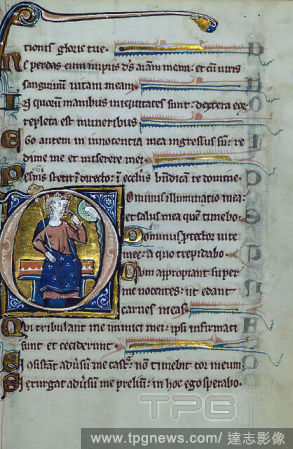 tionis glorie tue.
Ne perdas cum impiis ds aīam meam: et cū viris
sanguinum vitam meam.
In quorū manibus iniquitates sunt: dextera eorū
repleta est muneribus.
Ego autem in innocentia mea ingressus sū: re
dime me et miserere mei.
Pes ms stetit ī directo: ī ecclīis bn̄dicā te domine.
Dominus illuminatio mea:
et salus mea quē timebo.
Dominus ꝓtector vite
mee: a quo trepidabo.
Dum appropiant super
me nocentes: ut edant
carnes meas.
Qui tribulant me inimici mei: ipī infirmati
sunt et ceciderunt.
Si consistant adūsū me castra: nō timebit cor meum.
Si exurgat adūsū me preliū: in hoc ego sperabo.
TPG
www.tpgnews.com / 達志影像